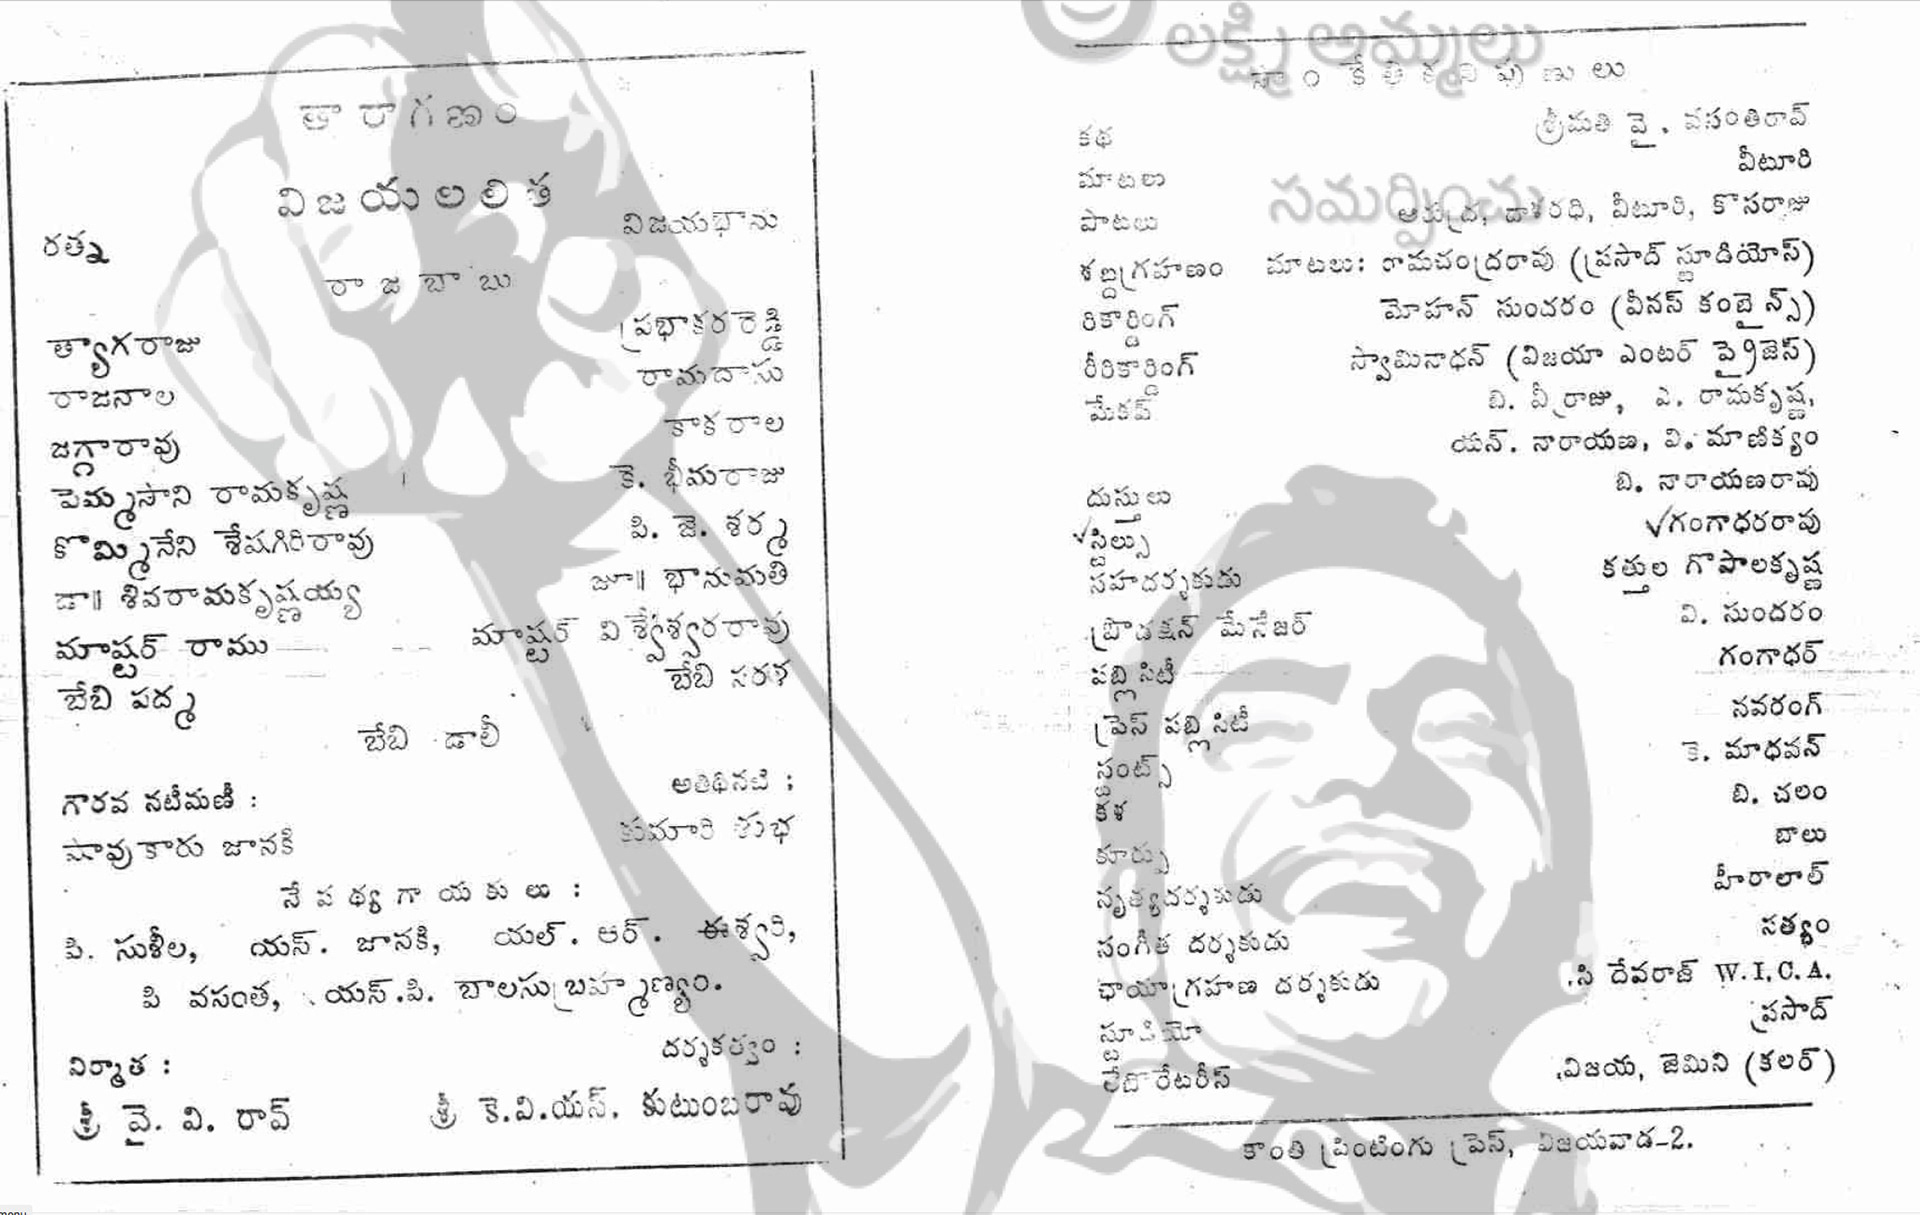 తారాగణం
విజయలలిత
రత్న విజయభాను
రాజబాబు
త్యాగరాజు ప్రభాకరరెడ్డి
రాజనాల రామదాసు
జగ్గారావు కాకరాల
పెమ్మసాని రామకృష్ణ కె. భీమరాజు
కొమ్మినేని శేషగిరిరావు పి. జె. శర్మ
డా॥ శివరామకృష్ణయ్య జూ॥ భానుమతి
మాష్టర్ రాము మాష్టర్ విశ్వేశ్వరరావు
బేబి పద్మ బేబి సరళ
బేబి డాలీ
గౌరవ నటీమణి : అతిథినటి :
షావుకారు జానకి కుమారి శుభ
నేపథ్యగాయకులు :
పి. సుశీల, యస్. జానకి, యల్. ఆర్. ఈశ్వరి,
పి వసంత, యస్.పి. బాలసుబ్రహ్మణ్యం.
నిర్మాత : దర్శకత్వం :
శ్రీ వై. వి. రావ్ శ్రీ కె.వి.యస్. కుటుంబరావు
లక్ష్మి అమ్మలు
సాంకేతికనిపుణులు
కథ శ్రీమతి వై. వసంతిరావ్
మాటలు వీటూరి
సమర్పించు
పాటలు ఆరుద్ర, దాశరధి, వీటూరి, కొసరాజు
శబ్దగ్రహణం మాటలు: రామచంద్రరావు (ప్రసాద్ స్టూడియోస్)
రికార్డింగ్ మోహన్ సుందరం (వీనస్ కంబైన్స్)
రీరికార్డింగ్ స్వామినాధన్ (విజయా ఎంటర్ ప్రైజెస్)
మేకప్ బి. వీర్రాజు, ఎ. రామకృష్ణ,
యన్. నారాయణ, వి. మాణిక్యం
దుస్తులు బి. నారాయణరావు
స్టిల్సు గంగాధరరావు
సహదర్శకుడు కత్తుల గోపాలకృష్ణ
ప్రొడక్షన్ మేనేజర్ వి. సుందరం
పబ్లిసిటీ గంగాధర్
ప్రెస్ పబ్లిసిటీ నవరంగ్
స్టంట్స్ కె. మాధవన్
కళ బి. చలం
కూర్పు బాలు
నృత్యదర్శకుడు హీరాలాల్
సంగీత దర్శకుడు సత్యం
ఛాయాగ్రహణ దర్శకుడు సి దేవరాజ్ W.I.C.A.
స్టూడియో ప్రసాద్
లేబొరేటరీస్ విజయ, జెమిని (కలర్)
కాంతి ప్రింటింగు ప్రెస్, విజయవాడ-2.